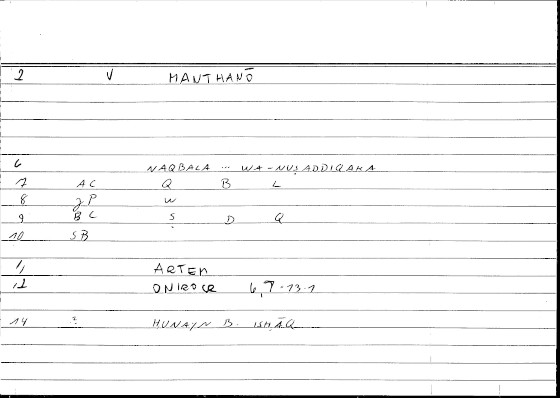 2 V MANTHANŌ
6 NAQBALA ... WA-NUṢADDIQAHA
7 AC Q B L
8 JP W
9 BC Ṣ D Q
10 SB
11 ARTEM
12 ONIROCR 6,7-13.1
14 ? ḤUNAYN B. ISḤĀQ